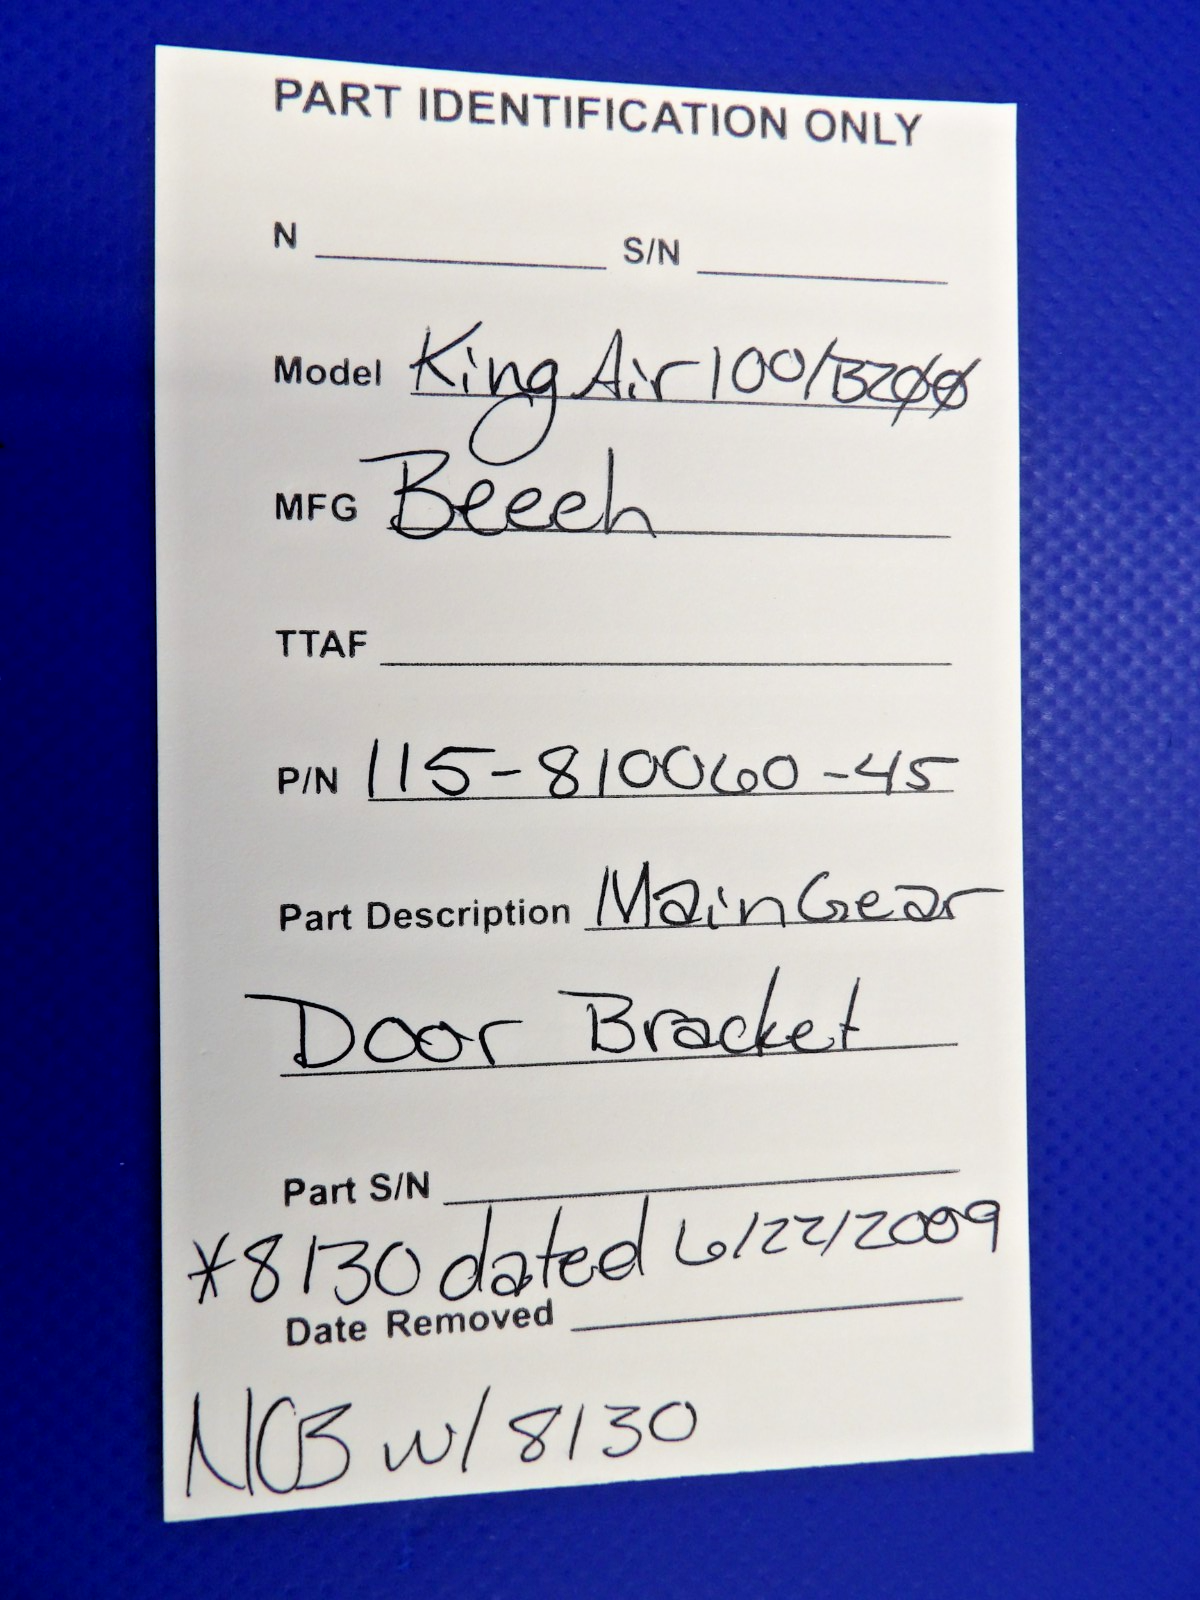 PART IDENTIFICATION ONLY
N S/N
Model King Air 100/B200
MFG Beech
TTAF
P/N 115-810060-45
Part Description Main Gear
Door Bracket
Part S/N
*8130 dated 6/22/2009
Date Removed
NOB w/ 8130